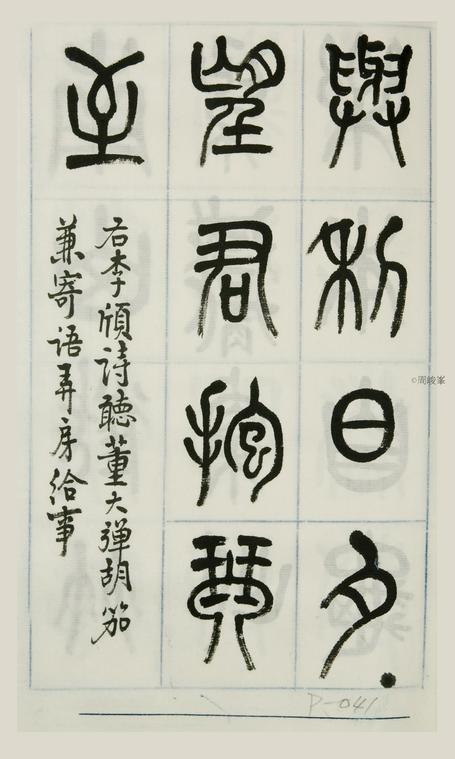 與利日夕
望君抱琴
至
右李頎詩聽董大彈胡笳
兼寄語弄房給事
©周峻峯
P-041